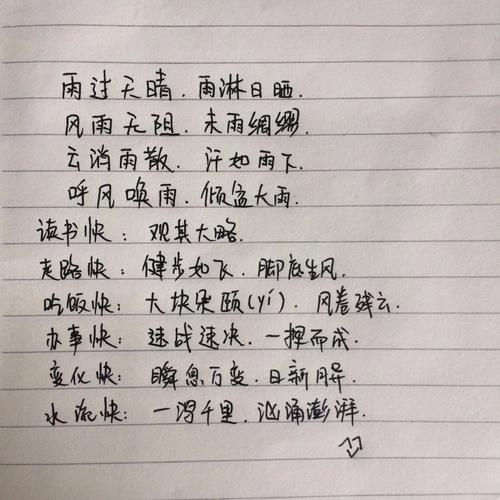 雨过天晴.雨淋日晒.
风雨无阻.未雨绸缪.
云消雨散.汗如雨下.
呼风唤雨.倾盆大雨.
读书快:观其大略.
走路快:健步如飞.脚底生风.
吃饭快:大块朵颐(yí).风卷残云.
办事快:速战速决.一挥而成.
变化快:瞬息万变.日新月异.
水流快:一泻千里.汹涌澎湃.